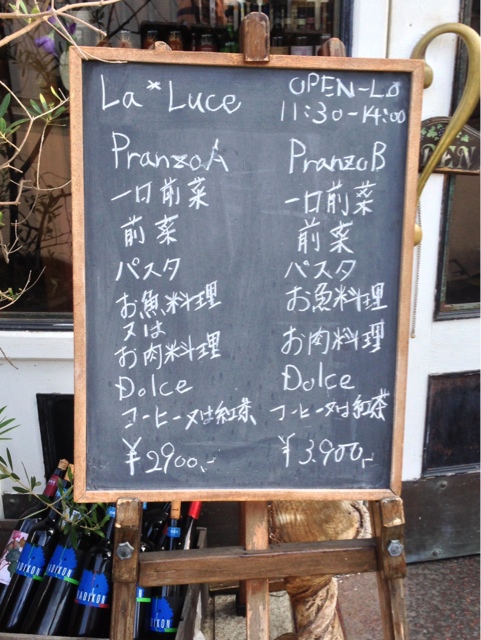 La*Luce
OPEN-LO
11:30-14:00
Pranzo A
一口前菜
前菜
パスタ
お魚料理
又は
お肉料理
Dolce
コーヒー又は紅茶
¥2900,-
Pranzo B
一口前菜
前菜
パスタ
お魚料理
お肉料理
Dolce
コーヒー又は紅茶
¥3.900,-
RADIKON
RADIKON